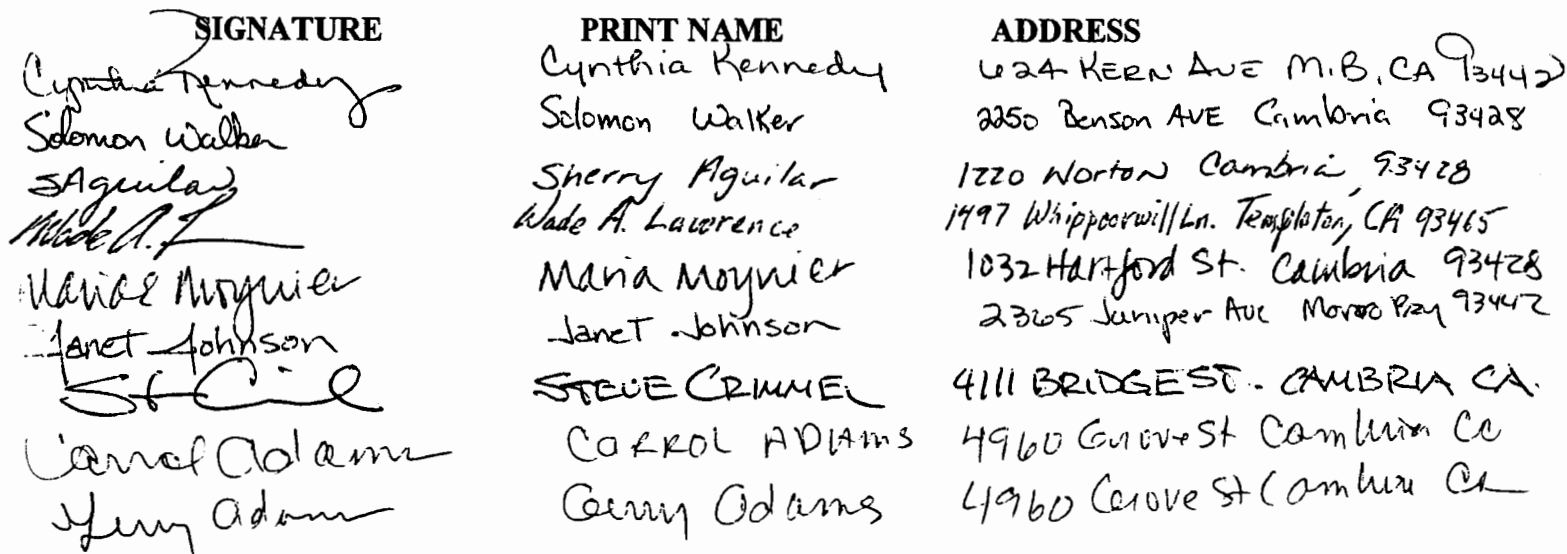 SIGNATURE PRINT NAME ADDRESS
Cynthia Kennedy Cynthia Kennedy 624 KERN AVE M.B, CA 93442
Solomon Walker Solomon Walker 2250 Benson AVE Cambria 93428
SAguilar Sherry Aguilar 1220 Norton Cambria 93428
Wade A. Wade A. Lawrence 1497 Whippoorwill Ln. Templeton, CA 93465
Maria Moynier Maria Moynier 1032 Hartford St. Cambria 93428
Janet Johnson Janet Johnson 2365 Juniper Ave Morro Bay 93442
STEVE CRIMMEL 4111 BRIDGE ST. CAMBRIA CA.
Carrol Adams CARROL ADAMS 4960 Grove St Cambria Ca
Gerry Adams Gerry Adams 4960 Grove St Cambria Ca